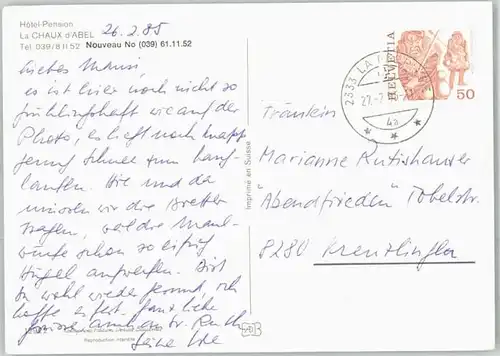 Hôtel-Pension
La CHAUX d'ABEL
Tél 039/8 11 52 Nouveau No (039) 61.11.52
26.2.85
Liebes Mausi,
es ist hier noch nicht so
frühlingshaft wie auf der
Photo, es liegt noch knapp
genug Schnee zum Lang-
laufen. Hie und da
müssen wir die Bretter
tragen, weil die Maul-
würfe schon so eifrig
Hügel aufwerfen. Bist
Du wohl wieder gesund, ich
hoffe es fest. Ganz liebe
Ruth
Reproduction interdite
Deine
Imprimé en Suisse
2333 LA
4a
HELVETIA
50
Fräulein
Marianne Rutishauser
"Abendfrieden" Tobelstr.
8280 Kreuzlingen